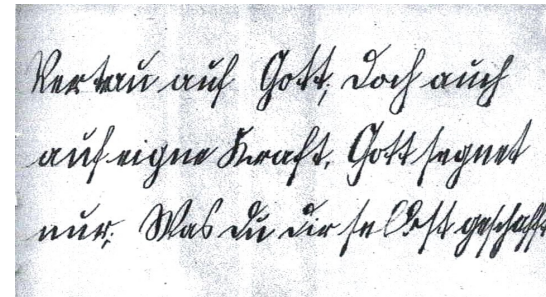 Vertrau auf Gott, doch auch
auf eigne Kraft. Gott segnet
nur, Was du dir selbst geschafft